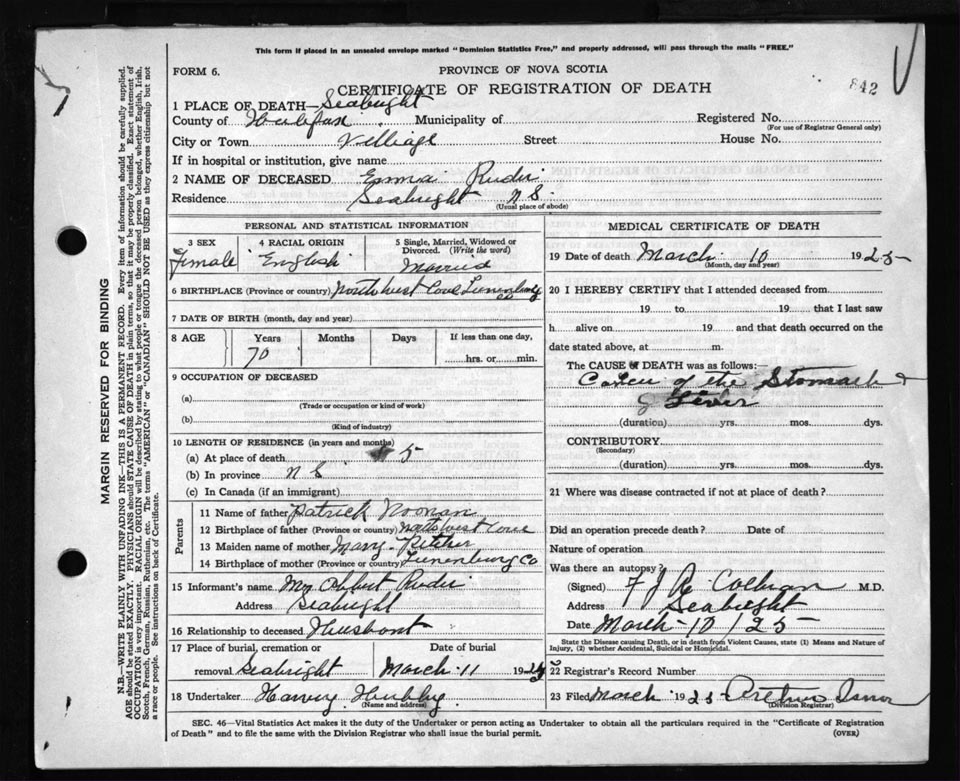 This form if placed in an unsealed envelope marked "Dominion Statistics Free," and properly addressed, will pass through the mails "FREE."
FORM 6.
PROVINCE OF NOVA SCOTIA
CERTIFICATE OF REGISTRATION OF DEATH
842
1 PLACE OF DEATH— Seabright
County of Halifax Municipality of Registered No.
(For use of Registrar General only)
City or Town Village Street House No.
If in hospital or institution, give name
2 NAME OF DECEASED Emma
Residence Seabright N S
(Usual place of abode)
PERSONAL AND STATISTICAL INFORMATION
3 SEX 4 RACIAL ORIGIN 5 Single, Married, Widowed or Divorced. (Write the word)
Female English Married
6 BIRTHPLACE (Province or country) North West Cove Lunenburg Co
7 DATE OF BIRTH (month, day and year)
8 AGE Years Months Days If less than one day,
70 hrs. or min.
9 OCCUPATION OF DECEASED
(a)
(Trade or occupation or kind of work)
(b)
(Kind of industry)
10 LENGTH OF RESIDENCE (in years and months)
(a) At place of death 5
(b) In province N S
(c) In Canada (if an immigrant)
Parents
11 Name of father Patrick
12 Birthplace of father (Province or country) North West Cove
13 Maiden name of mother Mary
14 Birthplace of mother (Province or country) Lunenburg Co
15 Informant's name
Address Seabright
16 Relationship to deceased Husbont
17 Place of burial, cremation or removal Seabright Date of burial March 11 19
18 Undertaker Harvey Hubley
(Name and address)
MEDICAL CERTIFICATE OF DEATH
19 Date of death March 10 1925
(Month, day and year)
20 I HEREBY CERTIFY that I attended deceased from
19 to 19 that I last saw
h alive on 19 and that death occurred on the
date stated above, at m.
The CAUSE OF DEATH was as follows:—
of the Stomach &
Liver
(duration) yrs. mos. dys.
CONTRIBUTORY
(Secondary)
(duration) yrs. mos. dys.
21 Where was disease contracted if not at place of death?
Did an operation precede death? Date of
Nature of operation
Was there an autopsy?
(Signed) Cochran M.D.
Address Seabright
Date March 10 1925
State the Disease causing Death, or in death from Violent Causes, state (1) Means and Nature of Injury, (2) whether Accidental, Suicidal or Homicidal.
22 Registrar's Record Number
23 Filed March 1925 Arthur
(Division Registrar)
SEC. 46—Vital Statistics Act makes it the duty of the Undertaker or person acting as Undertaker to obtain all the particulars required in the "Certificate of Registration
of Death" and to file the same with the Division Registrar who shall issue the burial permit. (OVER)
MARGIN RESERVED FOR BINDING
N.B.—WRITE PLAINLY WITH UNFADING INK—THIS IS A PERMANENT RECORD. Every item of information should be carefully supplied.
AGE should be stated EXACTLY. PHYSICIANS should STATE CAUSE OF DEATH in plain terms, so that it may be properly classified. Exact statement of
OCCUPATION is very important. RACIAL ORIGIN will be described by stating to what people or tongue the deceased person belonged, whether English, Irish,
Scotch, French, German, Russian, Ruthenian, etc. The terms "AMERICAN" or "CANADIAN" SHOULD NOT BE USED as they express citizenship but not
a race or people. See instructions on back of Certificate.